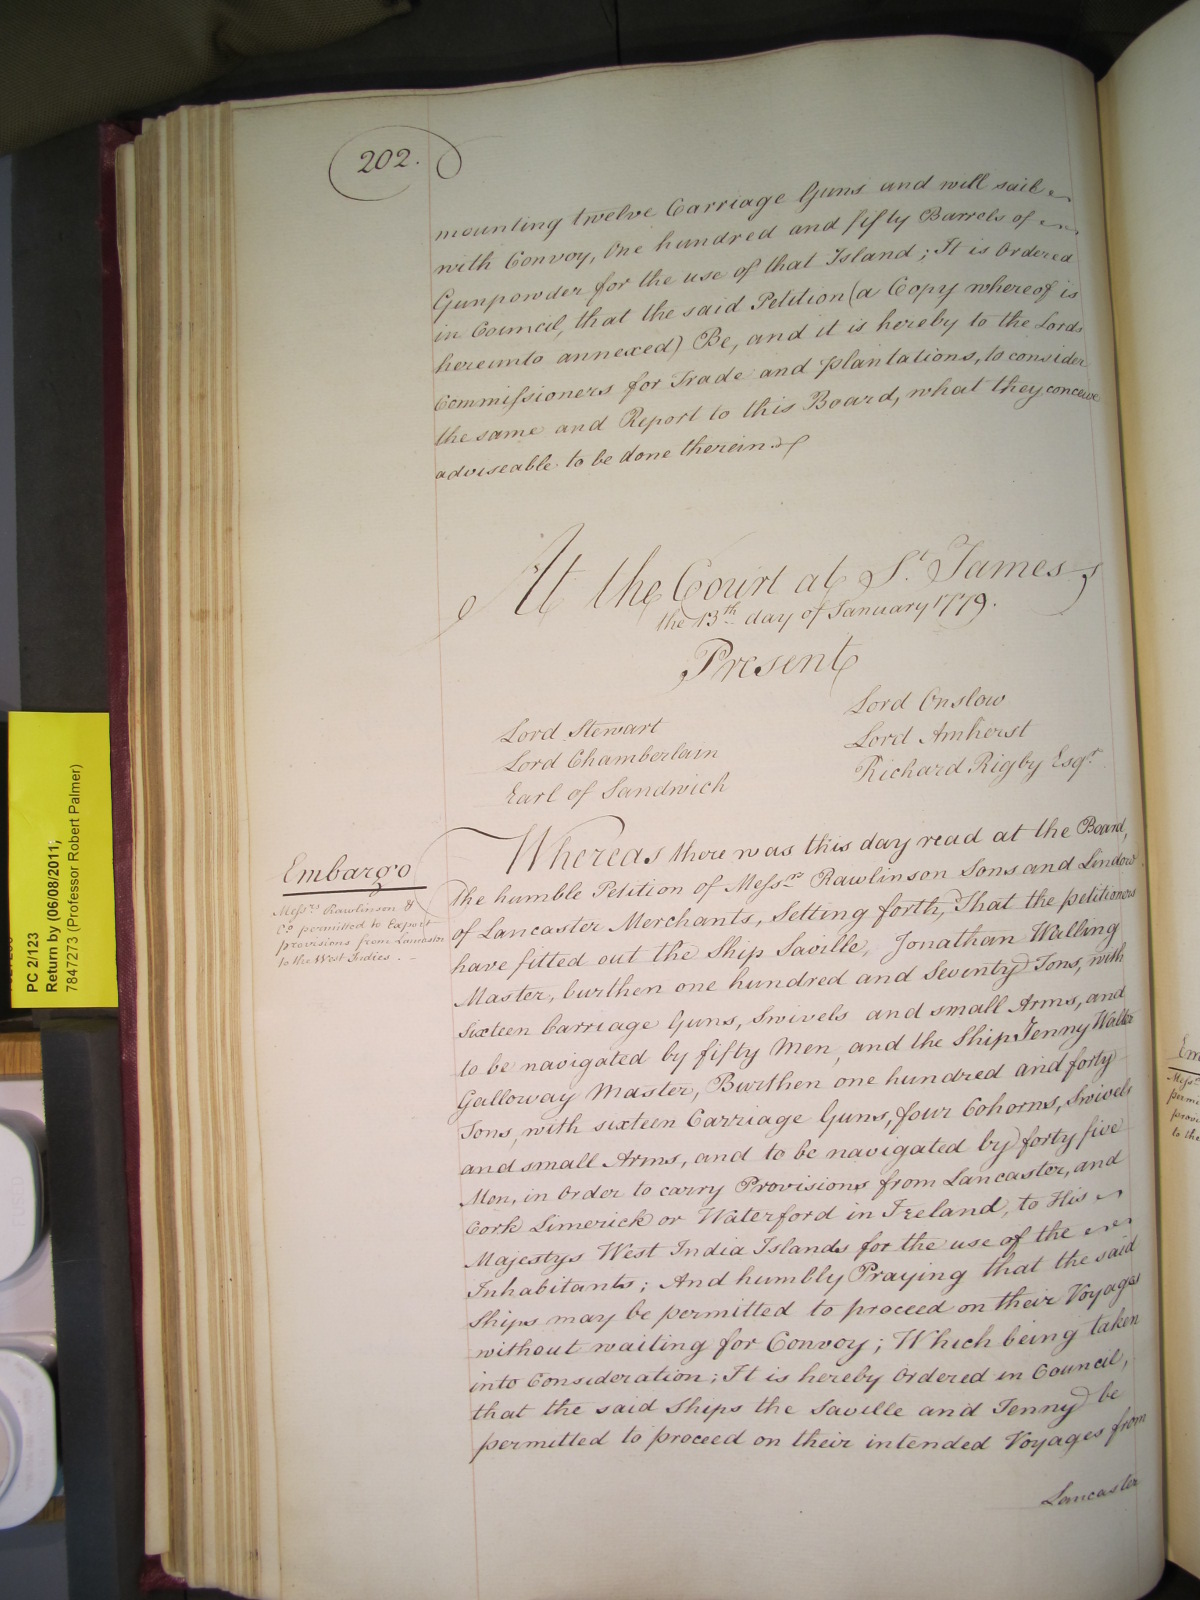 202.
mounting twelve Carriage Guns and will sail
with Convoy, One hundred and fifty Barrels of
Gunpowder for the use of that Island; It is Ordered
in Council, that the said Petition (a Copy whereof is
hereunto annexed) Be, and it is hereby to the Lords
Commissioners for Trade and Plantations, to consider
the same and Report to this Board, what they conceive
adviseable to be done therein.
At the Court at St. James's
the 13th day of January 1779.
Present
Lord Stewart
Lord Chamberlain
Earl of Sandwich
Lord Onslow
Lord Amherst
Richard Rigby Esqr.
Embargo
Messrs. Rawlinson &
Co. permitted to Export
provisions from Lancaster
to the West Indies.
Whereas there was this day read at the Board,
the humble Petition of Messrs. Rawlinson Sons and Lindow
of Lancaster Merchants, Setting forth, That the petitioners
have fitted out the Ship Saville, Jonathan Walling
Master, burthen one hundred and Seventy Tons, with
sixteen Carriage Guns, Swivels and small Arms, and
to be navigated by fifty Men, and the Ship Jenny Walter
Galloway Master, Burthen one hundred and forty
Tons, with sixteen Carriage Guns, four Cohorns, Swivels
and small Arms, and to be navigated by forty five
Men, in Order to carry Provisions from Lancaster, and
Cork Limerick or Waterford in Ireland, to His
Majestys West India Islands for the use of the
Inhabitants; And humbly Praying that the said
Ships may be permitted to proceed on their Voyages
without waiting for Convoy; Which being taken
into Consideration; It is hereby Ordered in Council,
that the said Ships the Saville and Jenny be
permitted to proceed on their intended Voyages from
Lancaster
PC 2/123
Return by (06/08/2011;
7847273 (Professor Robert Palmer)